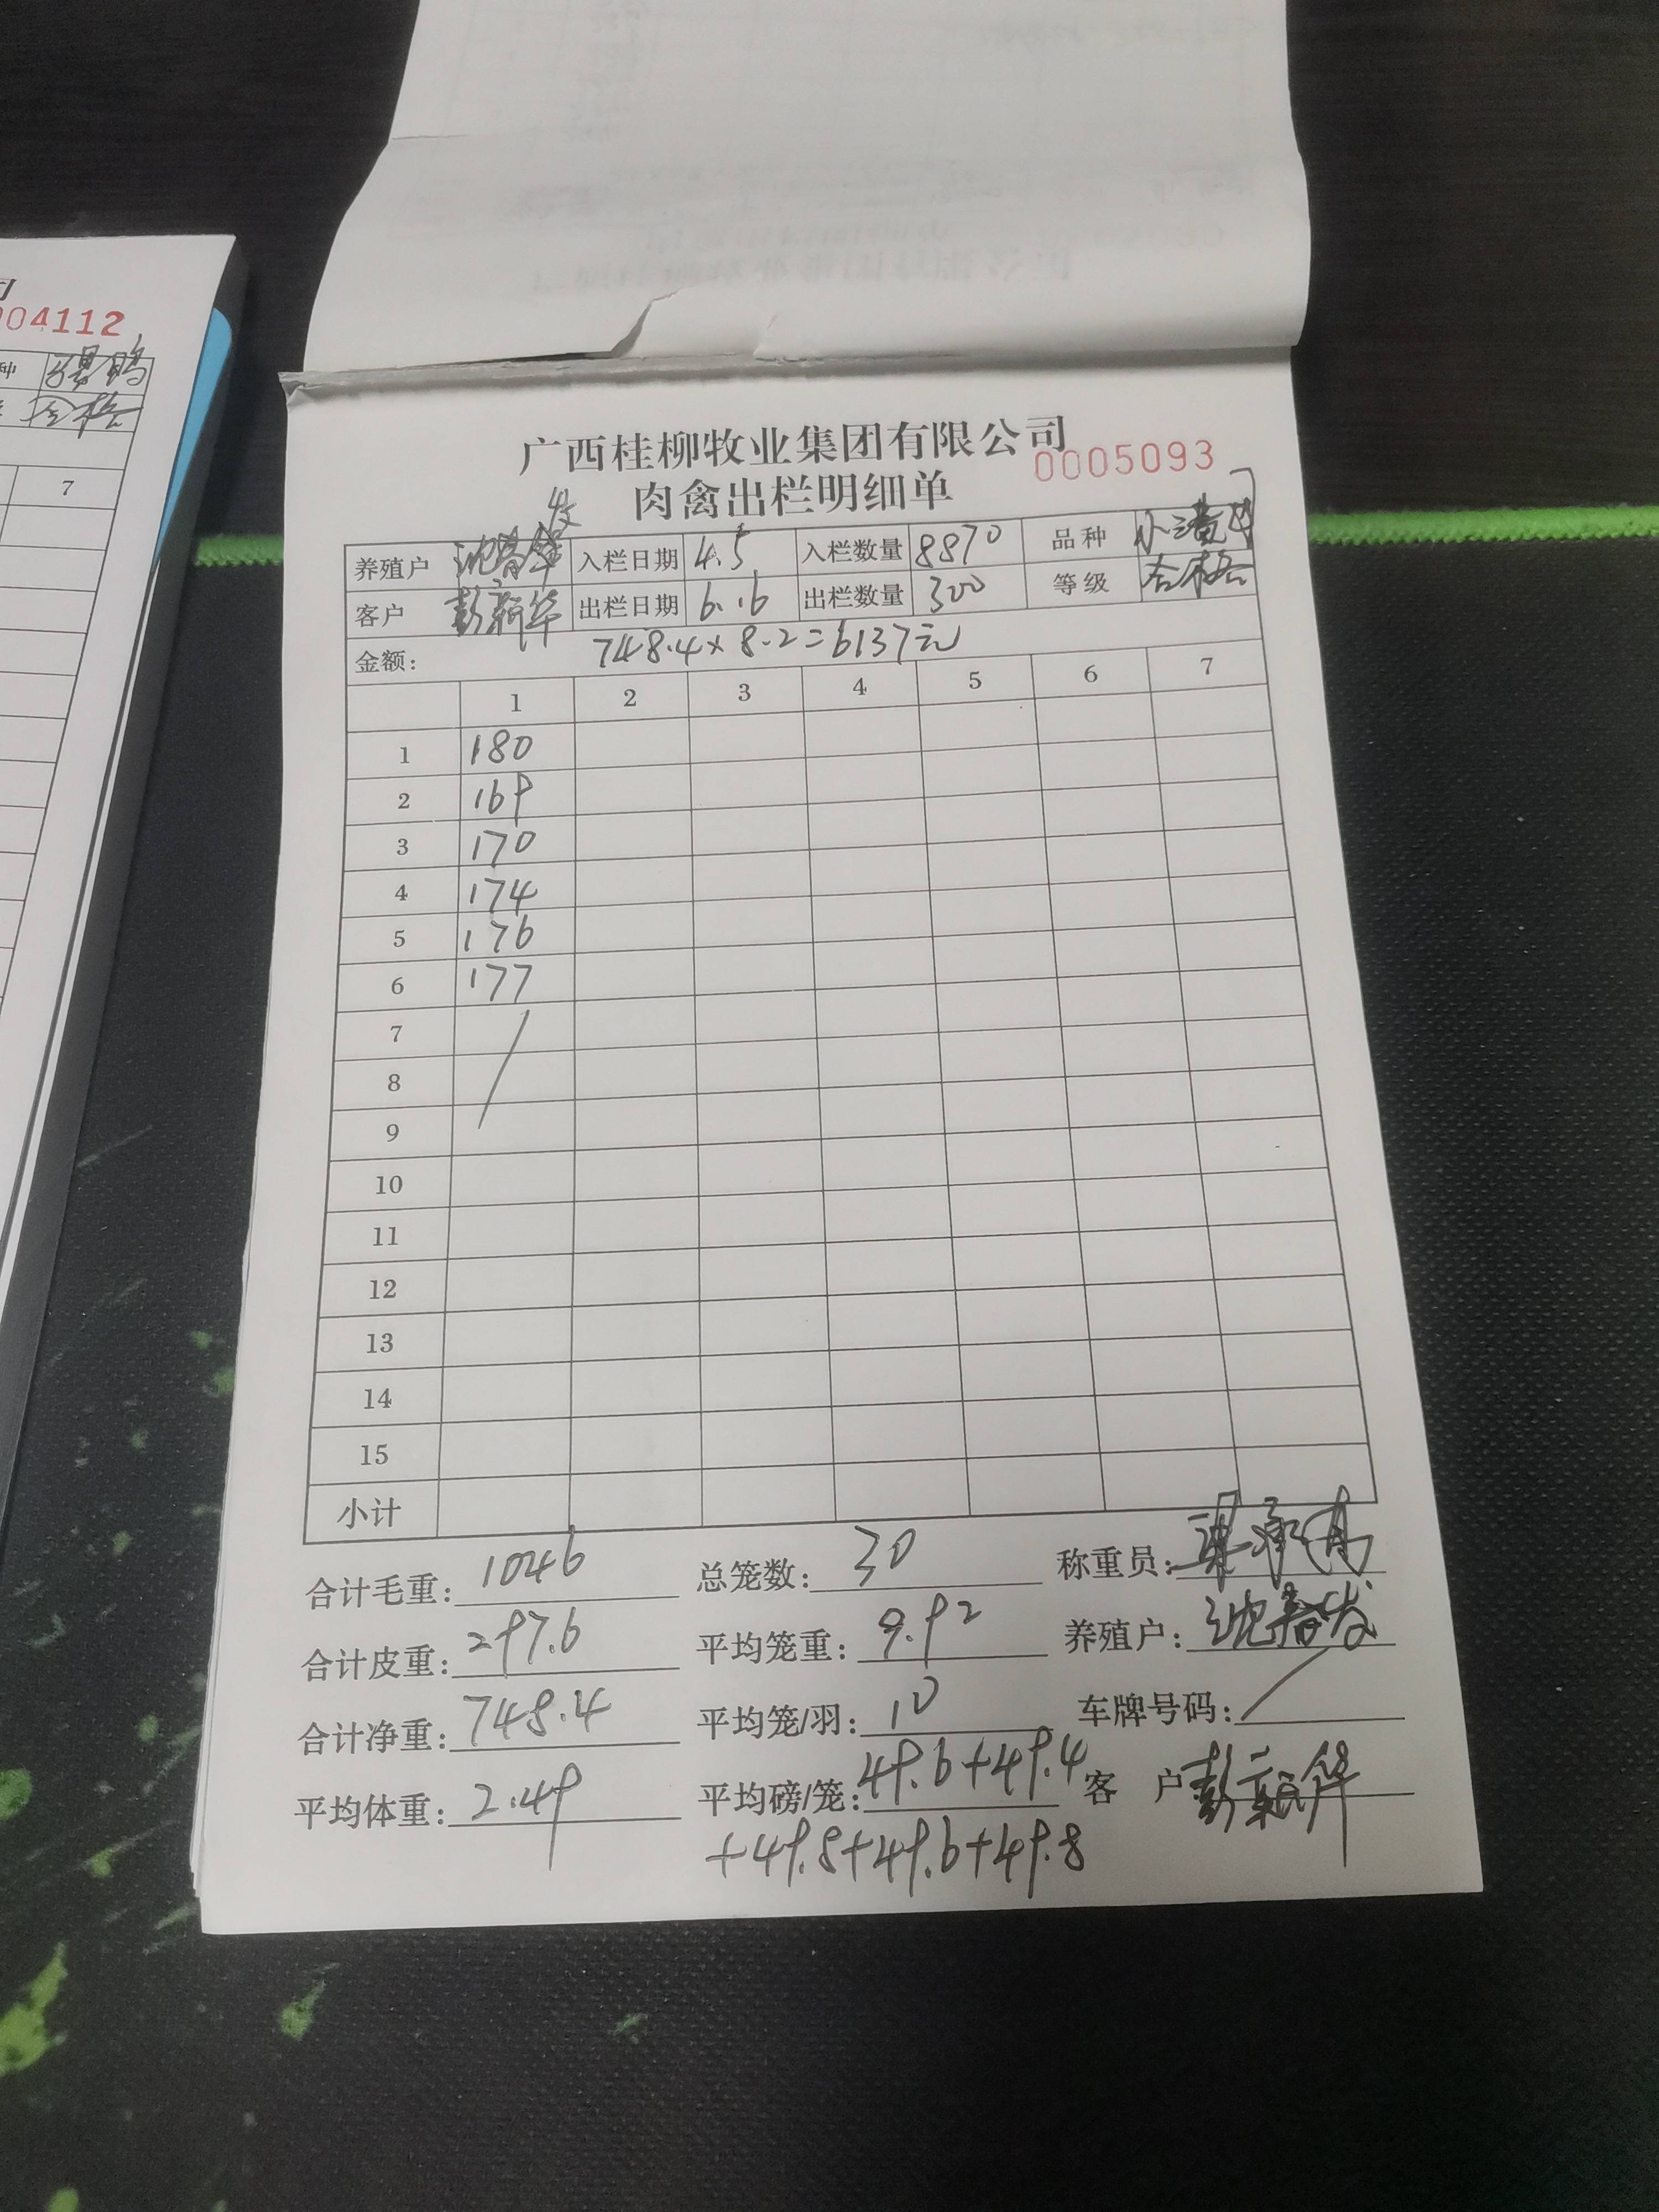 004112
种
合格
7
广西桂柳牧业集团有限公司
0005093
肉禽出栏明细单
发
养殖户 沈春华 入栏日期 4.5 入栏数量 8870 品种
客户 彭新华 出栏日期 6.16 出栏数量 300 等级 合格
金额: 748.4×8.2=6137元
1 2 3 4 5 6 7
1 180
2 169
3 170
4 174
5 176
6 177
7
8
9
10
11
12
13
14
15
小计
合计毛重: 1046 总笼数: 30 称重员:
合计皮重: 297.6 平均笼重: 9.92 养殖户: 沈春发
合计净重: 748.4 平均笼/羽: 10 车牌号码: /
平均体重: 2.49 平均磅/笼: 49.6+49.4 客 户 彭新华
+49.8+49.6+49.8